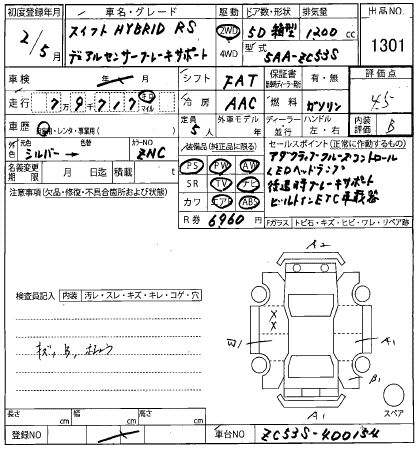 初度登録年月 車名・グレード 駆動 ドア数・形状 排気量 出品NO.
2/5月 スイフト HYBRID RS 2WD 5D 箱型 1200 cc 1301
デュアルセンサーブレーキサポート 4WD 型式 5AA-ZC53S
車検 年 月 シフト FAT 保証書 有・無 評価点
走行 7万9千717 キロ マイル 冷房 AAC 燃料 ガソリン 4.5
車歴 自家用・レンタ・事業用( ) 定員 5人 外車モデル 年 ディーラー 並行 ハンドル 左・右 内装評価 B
外色 元色 シルバー → 色替 カラーNO ZNC 装備品(純正品に限る) セールスポイント(正常に作動するもの)
名義変更期限 月 日 迄 積載 t PS PW AW アダプティブクルーズコントロール
注意事項(欠品・修復・不具合箇所および状態) SR TV ナビ LEDヘッドランプ
カワ エアB ABS 後退時ブレーキサポート
ビルトインETC車載器
R券 6960 円 Fガラス トビ石・キズ・ヒビ・ワレ・リペア跡
A2
検査員記入 内装 汚レ・スレ・キズ・キレ・コゲ・穴
X
X
キズ、B、
A1
B1
A1
スペア
長さ cm 幅 cm 高さ cm
登録NO 車台NO ZC53S-400154